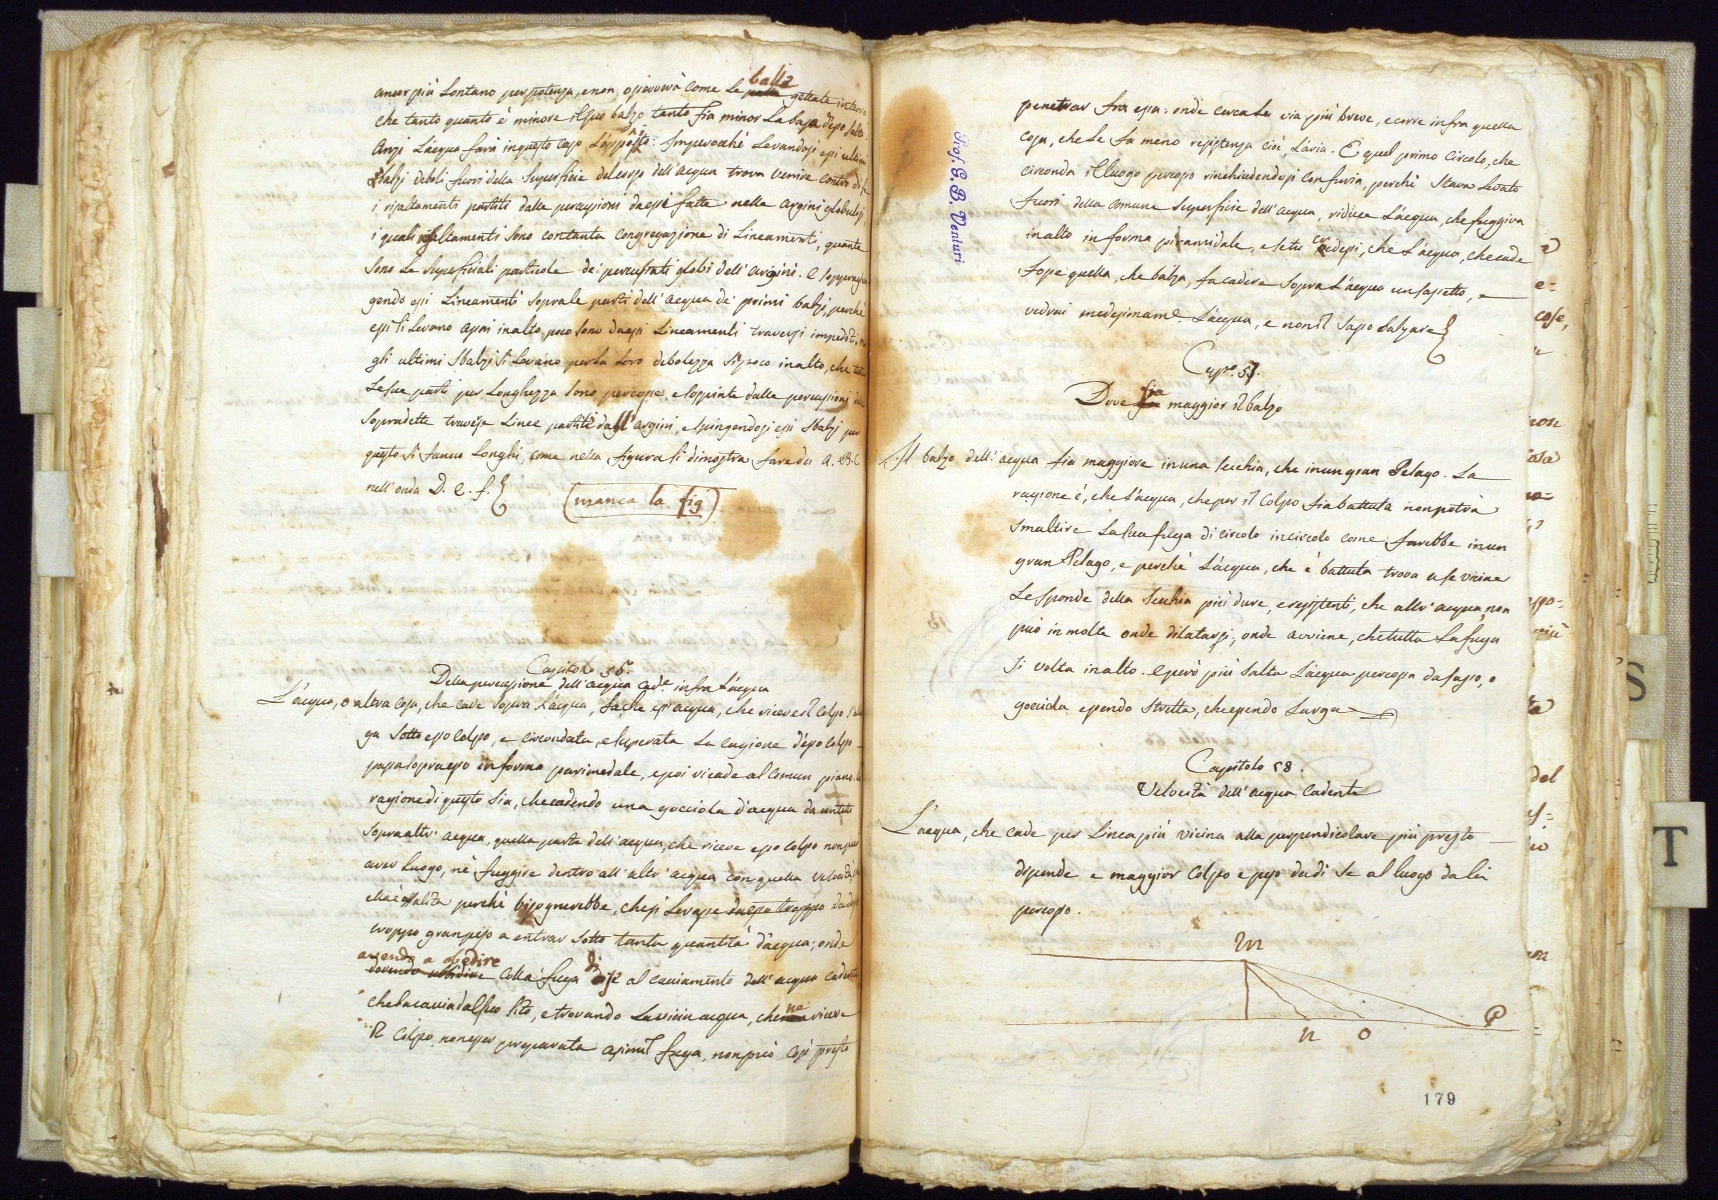 ancor più lontano per potenza, e non, o pioverà come le balle gettate in terra
che tanto quanto è minore il suo balzo, tanto fia minor la basa d'epso salto
Anzi l'acqua farà in questo caso l'opposto: Imperocché levandosi essi ultimi
sbalzi deboli fuori della superficie del corpo dell'acqua trova venire contro di se
i risaltamenti partiti dalle percussioni da essi fatte nelle argini globulosi
i quali risaltamenti sono con tanta congregazione di lineamenti, quante
sono le superficiali particole dei percussati globi dell'argini. e sopragiun
gendo essi lineamenti sopra le parti dell'acqua de' primi balzi, perché
essi si levano assai in alto, poco sono da essi lineamenti traversi impediti, ma
gli ultimi sbalzi si levano per la loro debolezza sì poco in alto, che tutte
le sue parti per longhezza sono percosse, e sospinte dalle percussioni
sopradette traverse linee partite dagl'argini, e spingendosi essi sbalzi per
questo si fanno longhi, come nella figura si dimostra fare da A. B. C
nell'onda D. e. f.
(manca la fig)
Capitolo 56.
Della percussione dell'acqua cad.e infra l'acqua
L'acqua, o altra cosa, che cade sopra l'acqua, fa, che essa acqua, che riceve il colpo
ga sotto esso colpo, e circondata, e superata la cagione d'epso colpo
passa sopra esso in forma parimedale, e poi ricade al comun piano. la
ragione di questo sia, che cadendo una gocciola d'acqua da un tetto
sopra altr'acqua, quella parte dell'acqua, che riceve esso colpo non può
aver luogo, nè fuggire dentro all'altr'acqua con quella velocità
ella è assalita perché bisognerebbe, che si levasse
troppo gran peso a entrar sotto tanta quantità d'acqua; onde
avendo a obedire colla fuga di se al cacciamento dell'acqua cadente
che la caccia dal suo sito, e trovando la vicin acqua, che na riceve
il colpo, non esser preparata a simil fuga, non può così presto
Prof. G. B. Venturi
penetrar fra essa: onde cerca la via più breve, e corre infra quella
cosa, che le fa meno resistenza cioè, l'aria. E quel primo circolo, che
circonda il luogo percosso rinchiudendosi con furia, perché stava levato
fuori della comune superficie dell'acqua, riduce l'acqua, che fuggiva
in alto in forma piramidale, e se tu credessi, che l'acqua, che cade
fosse quella, che balza, fa cadere sopra l'acqua un sassetto, e
vedrai medesimam.e l'acqua, e non il sasso balzare
Cap.o 57.
Dove fia maggior il balzo
Il balzo dell'acqua fia maggiore in una secchia, che in un gran Pelago. La
ragione è, che l'acqua, che per il colpo fia battuta non potrà
smaltire la sua fuga di circolo in circolo come farebbe in un
gran Pelago, e perché l'acqua, che è battuta trova a se vicine
le sponde della secchia più dure, e resistenti, che altr'acqua, non
può in molte onde dilatarsi, onde avviene, che tutta la fuga
si volta in alto. e però più salta l'acqua percossa da sasso, o
gocciola essendo stretta, che essendo larga
Capitolo 58.
Velocità dell'acqua cadente
L'acqua, che cade per linea più vicina alla perpendicolare più presto
dissende e maggior colpo e peso da di se al luogo da lei
percosso.
m
n o P
179
S
T